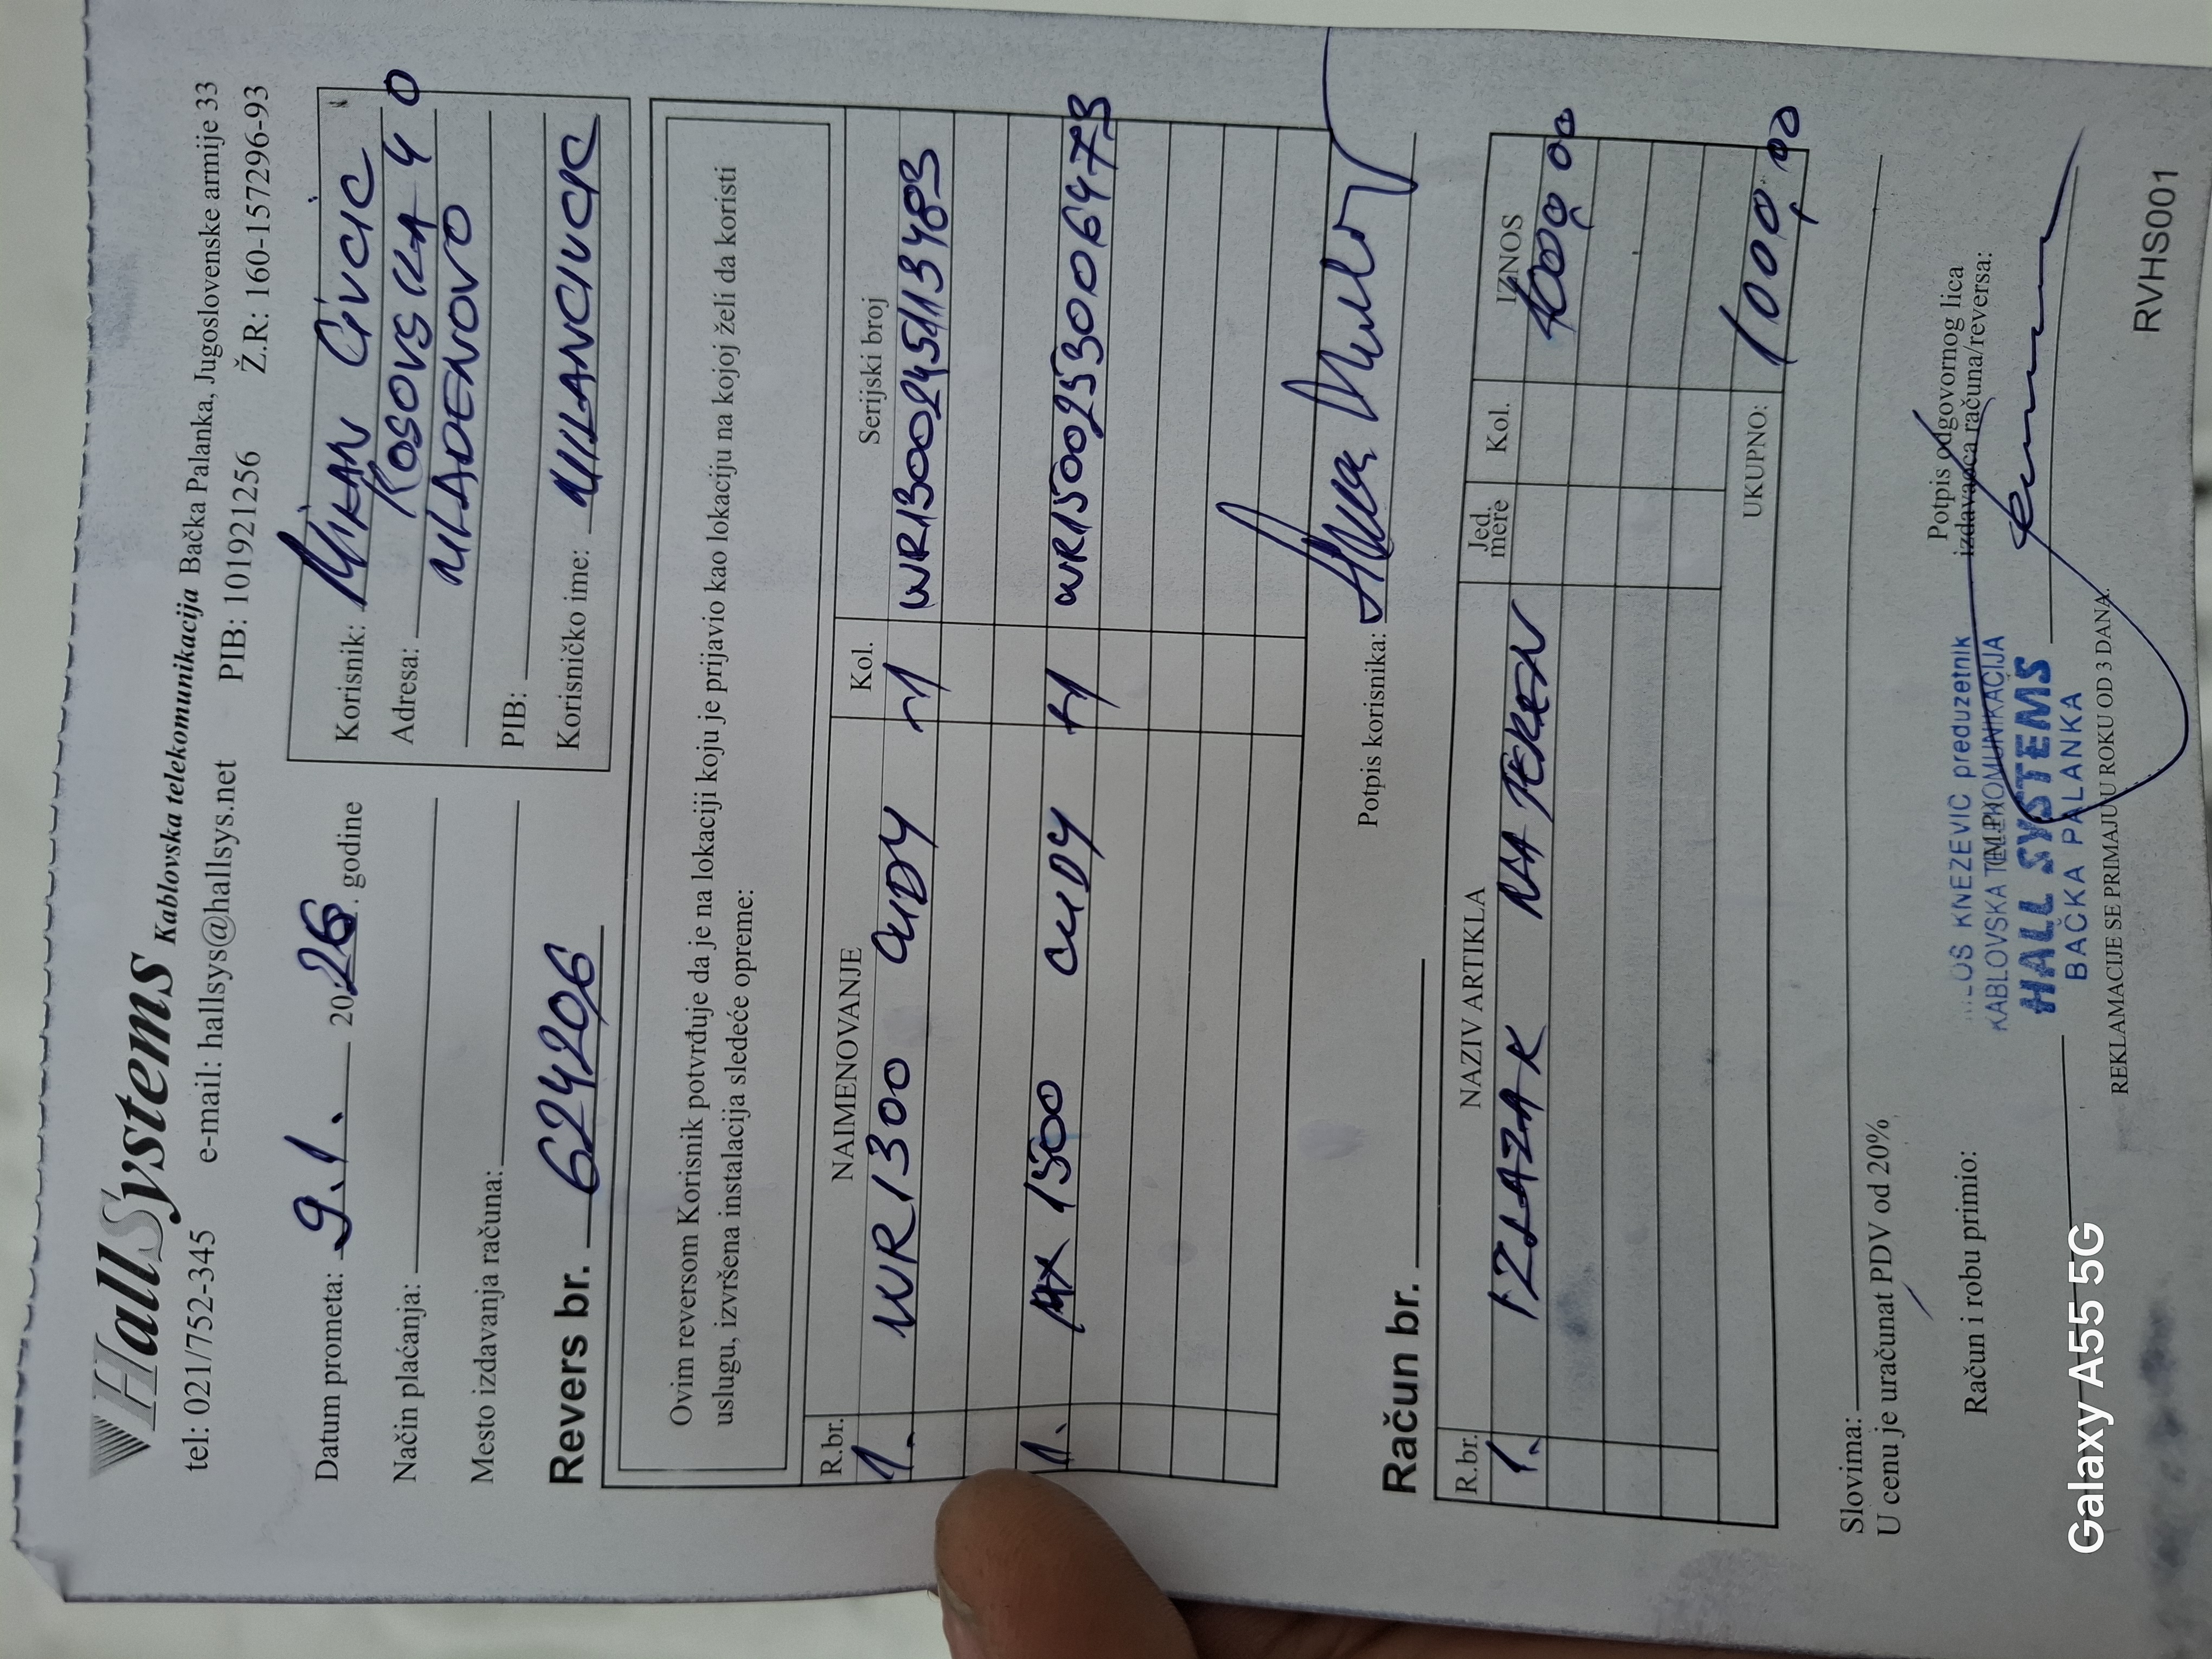 HallSystems Kablovska telekomunikacija Bačka Palanka, Jugoslovenske armije 33
tel: 021/752-345 e-mail: hallsys@hallsys.net PIB: 101921256 Ž.R: 160-157296-93
Datum prometa: 9.1. 2026. godine
Način plaćanja:
Mesto izdavanja računa:
Revers br. 624206
Korisnik: MILAN CIVCIC
Adresa: KOSOVSKA 40
MLADENOVO
PIB:
Korisničko ime: MILANCIVCIC
Ovim reversom Korisnik potvrđuje da je na lokaciji koju je prijavio kao lokaciju na kojoj želi da koristi
uslugu, izvršena instalacija sledeće opreme:
R.br. NAIMENOVANJE Kol. Serijski broj
1. WR1300 CUDY -1 WR1300245113483
1. 1500 CUDY +1 WR15002530064473
Potpis korisnika:
Račun br.
R.br. NAZIV ARTIKLA Jed. mere Kol. IZNOS
1. IZLAZAK NA TEREN 1000,00
UKUPNO: 1000,00
Slovima:
U cenu je uračunat PDV od 20%
Račun i robu primio:
Potpis odgovornog lica
izdavaoca računa/reversa:
KNEZEVIC preduzetnik
KABLOVSKA
HALL SYSTEMS
BAČKA PALANKA
REKLAMACIJE SE PRIMAJU U ROKU OD 3 DANA.
RVHS001
Galaxy A55 5G